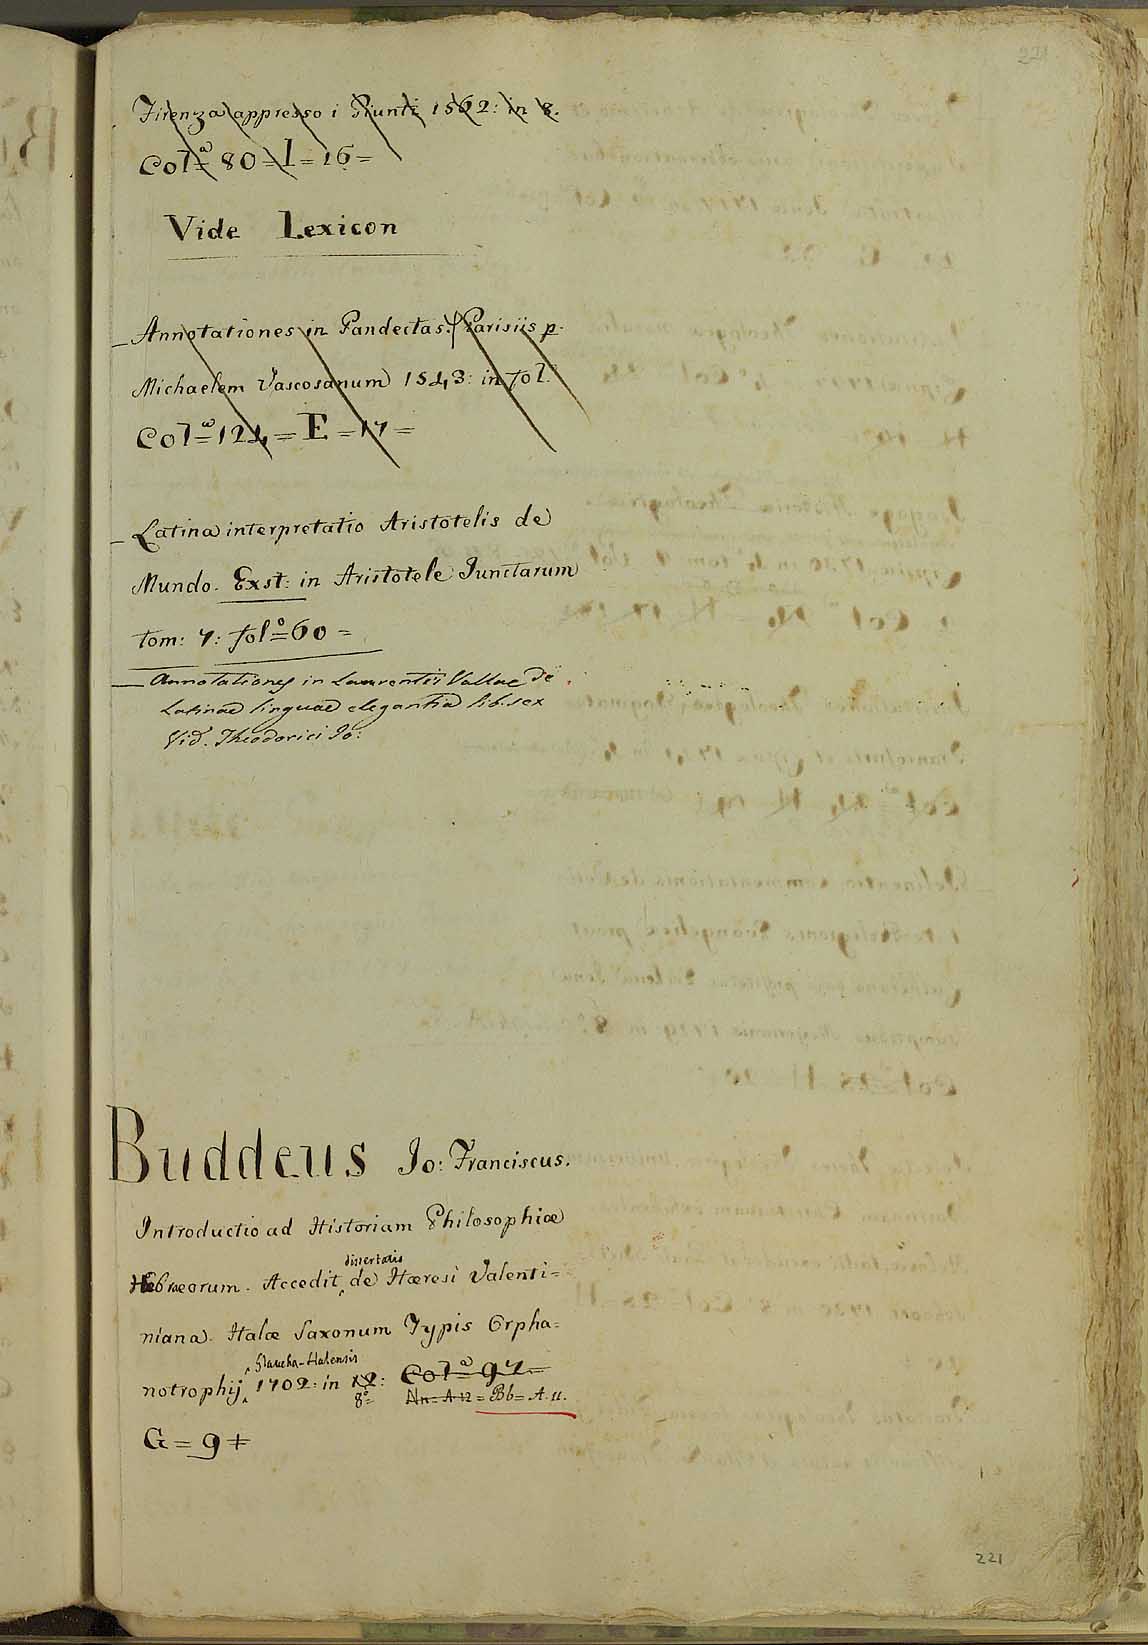 221
Firenza appresso i Giunti 1562: in 8.
Colª= 80 = I = 16 =
Vide Lexicon
_ Annotationes in Pandectas. Parisiis p.
Michaelem Vascosanum 1543: in fol.
Colª= 124 = E = 17 =
_ Latina interpretatio Aristotelis de
Mundo. Exst: in Aristotele Junctarum
tom: 7: folº= 60 =
_ Annotationes in Laurentii Vallae de
Latinae linguae elegantia lib. sex
Vid. Theodorici Jo:
Buddeus Jo: Franciscus.
Introductio ad Historiam Philosophiæ
Hebraeorum. Accedit dissertatio de Hæresi Valenti=
niana. Halæ Saxonum Typis Orpha=
notrophij Glaucha-Halensis 1702: in 12: 8º= Colª= 97=
Nn= A 12 = Bb= A. 11.
G = 9 +
221